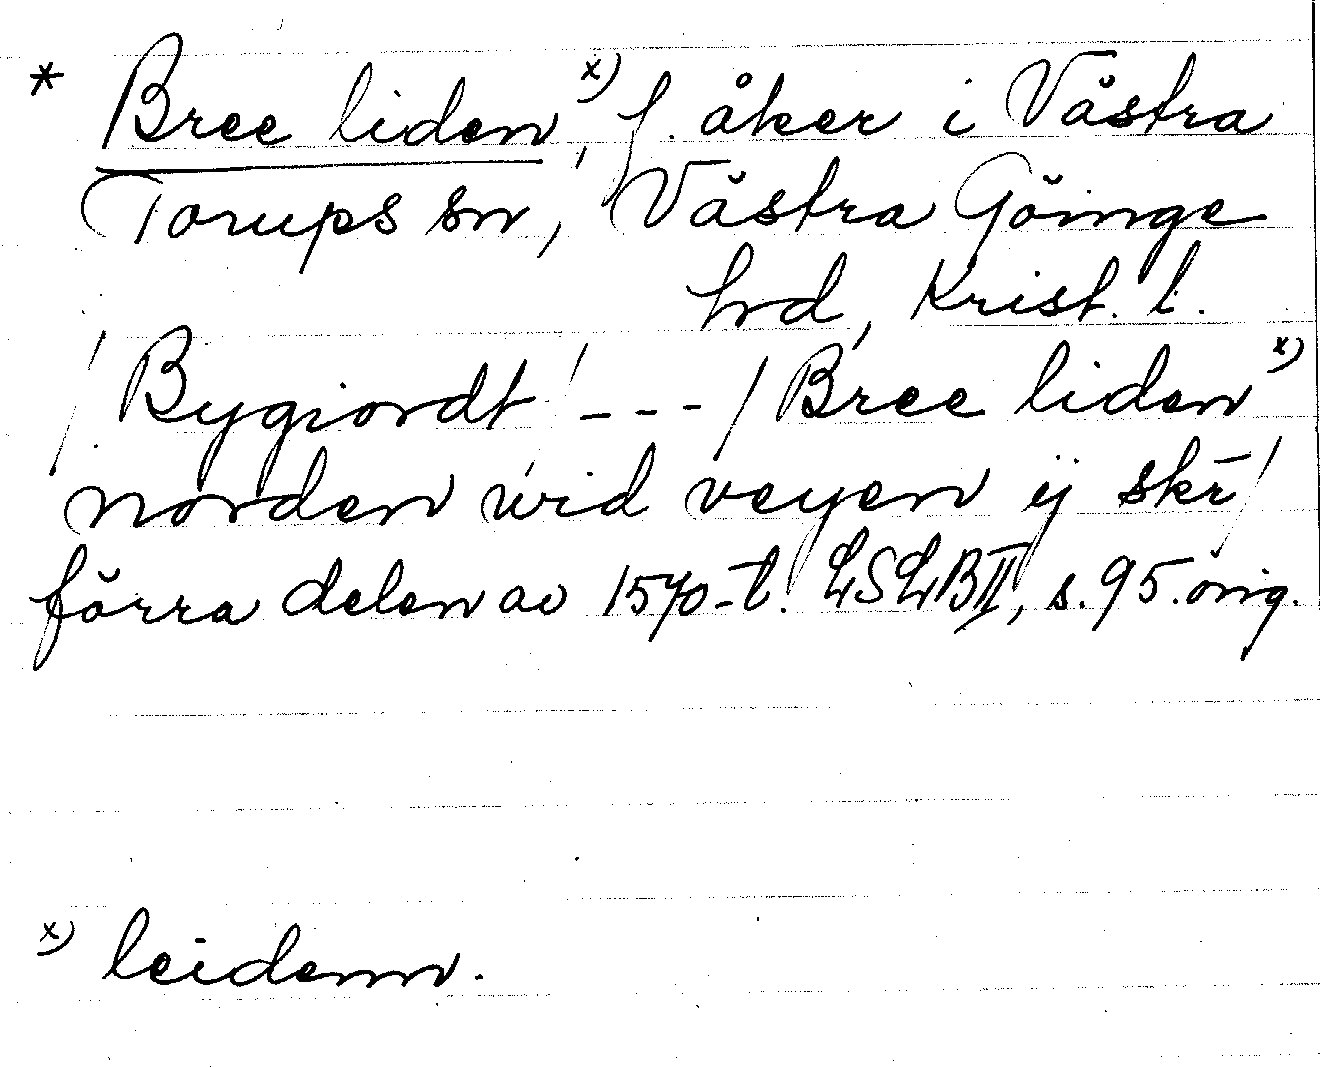 * Bree liden, x) f. åker i Västra
Torups sn, Västra Göinge
hrd, Krist. l.
/ Bygiordt / - - - / Bree liden x)
norden wid veyen ij skr̄ /
förra delen av 1570-t. LSLB II, s. 95. orig.
x) leidenn.